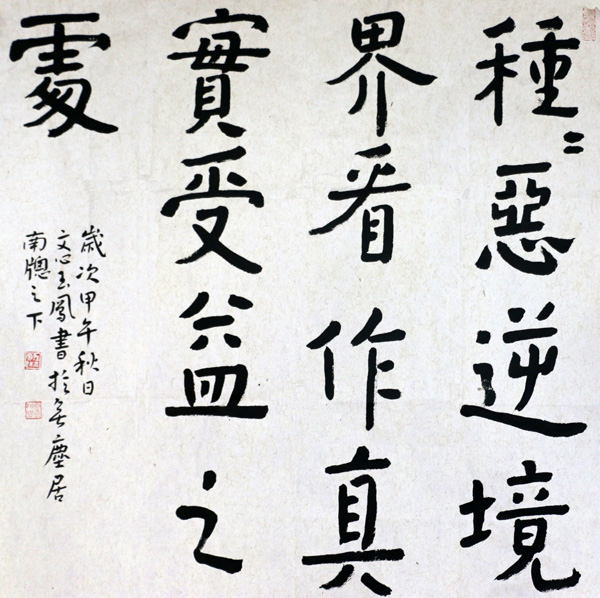 種〻惡逆境
界看作真
實受益之
處
歲次甲午秋日
文心玉鳳書於無塵居
南牕之下